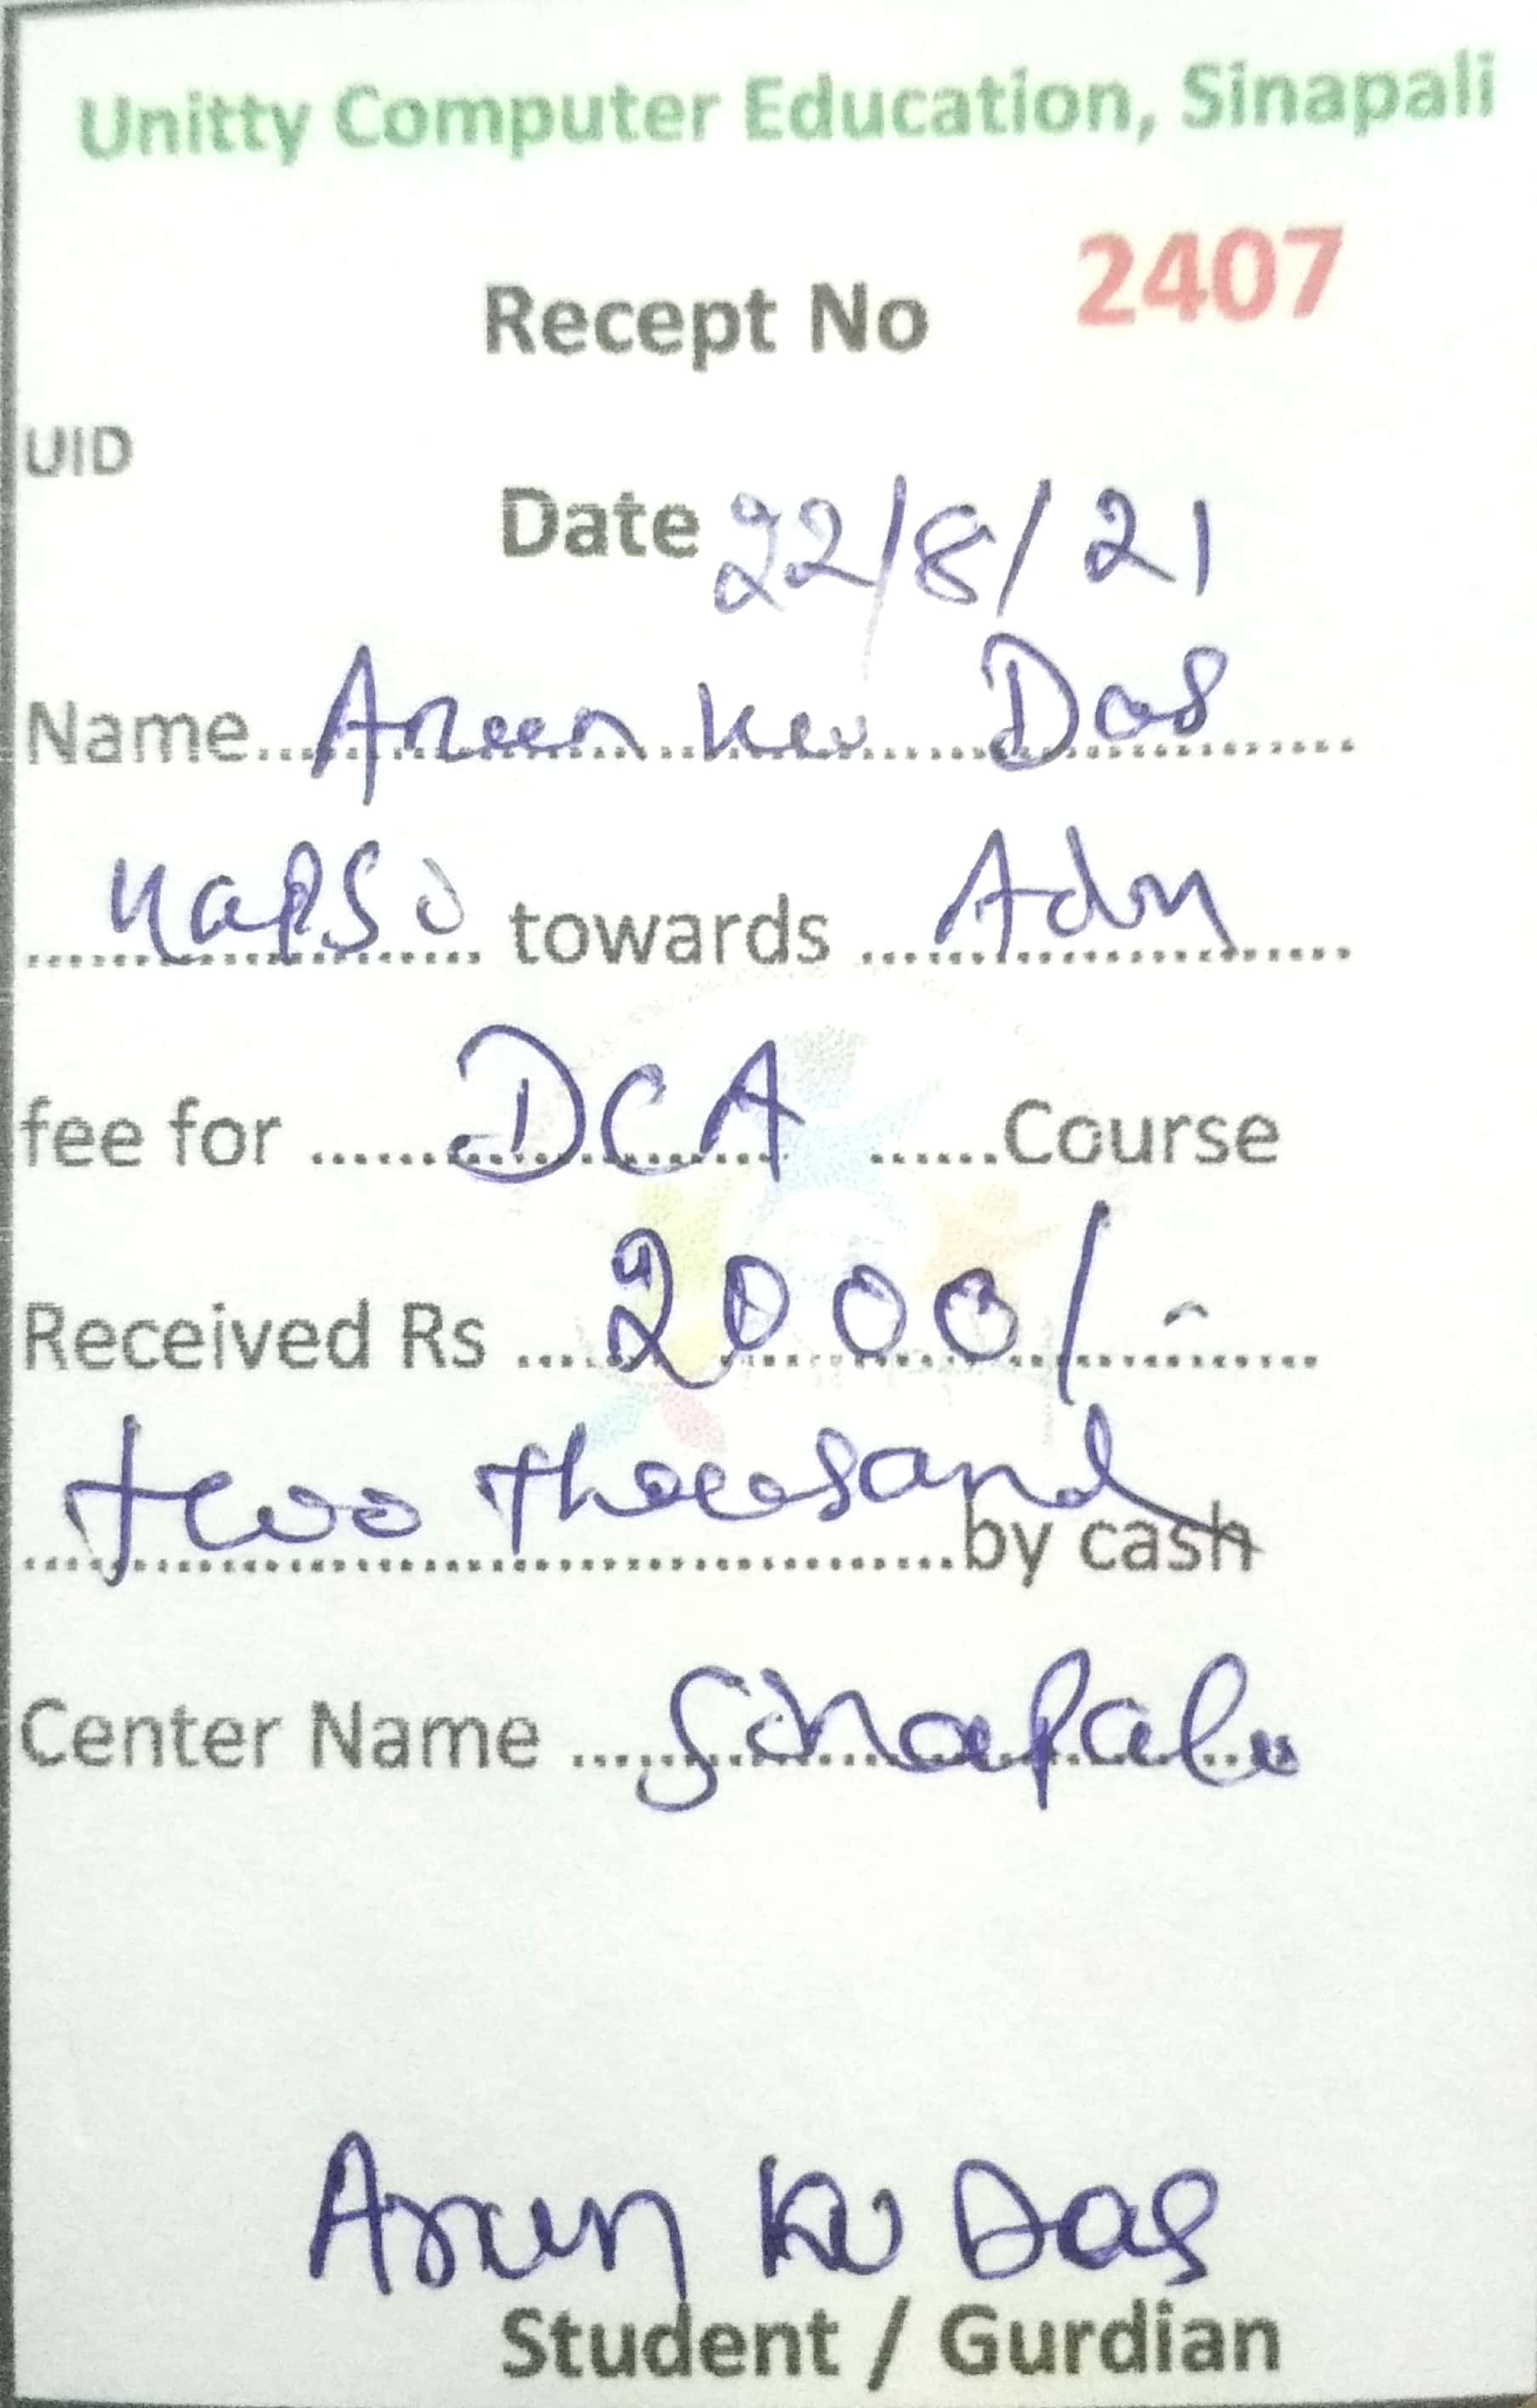 Unitty Computer Education, Sinapali
Recept No 2407
UID
Date 22/8/21
Name Arun Ku Das
towards Adm
fee for DCA Course
Received Rs 2000/-
two thousand by cash
Center Name Sinapali
Arun Ku Das
Student / Gurdian